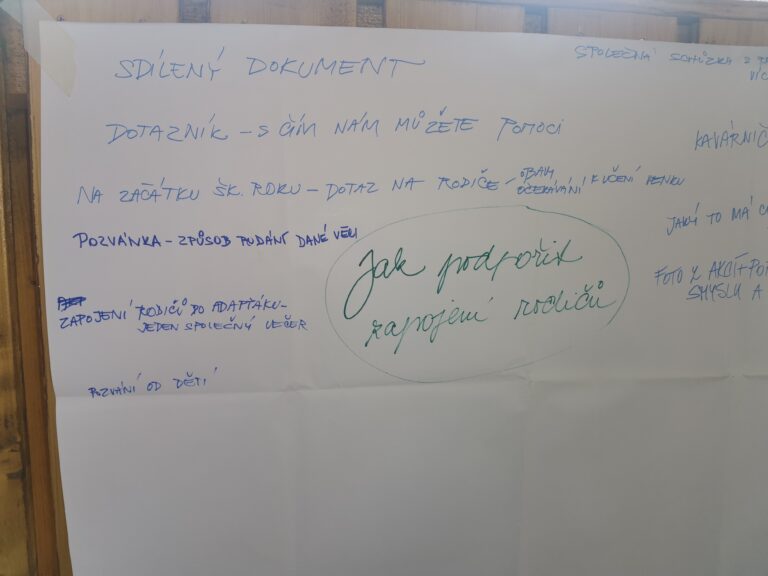 SDÍLENÝ DOKUMENT
DOTAZNÍK – S ČÍM NÁM MŮŽETE POMOCI
NA ZAČÁTKU ŠK. ROKU – DOTAZ NA RODIČE / OBAVY
OČEKÁVÁNÍ K UČENÍ VENKU
POZVÁNKA – ZPŮSOB PODÁNÍ DANÉ VĚCI
ZAPOJENÍ RODIČŮ DO ADAPŤÁKU –
JEDEN SPOLEČNÝ VEČER
POZVÁNÍ OD DĚTÍ
Jak podpořit
zapojení rodičů
SPOLEČNÁ SCHŮZKA S
VÍC
KAVÁRNIČ
JAKÝ TO MÁ
FOTO Z AKCÍ +
SMYSLU A